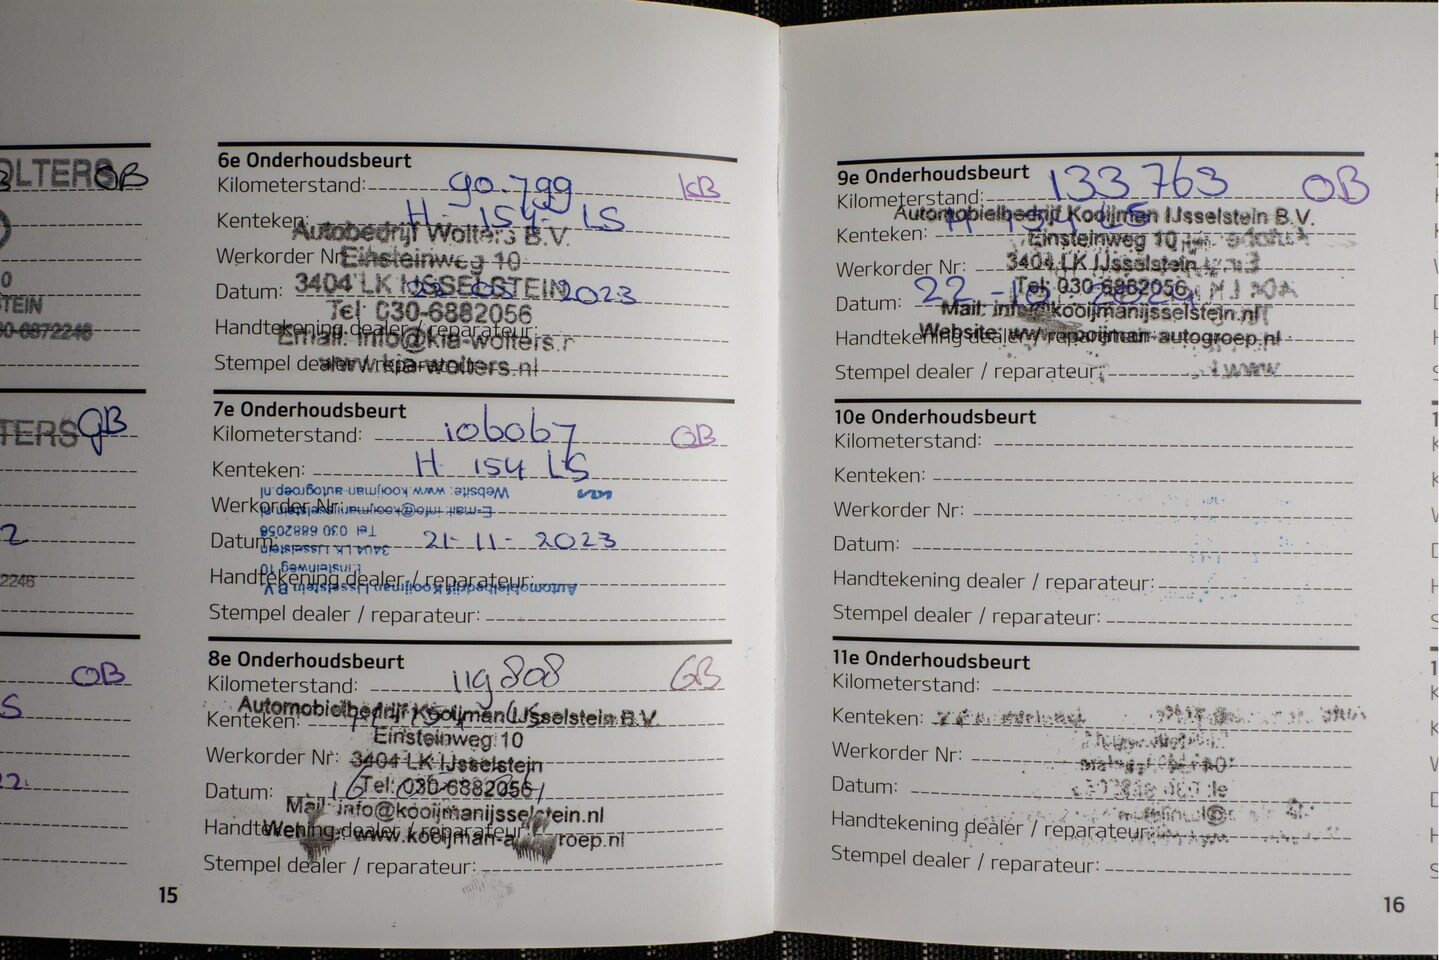 OLTERS OB
0
TEIN
30-6872246
TERS GB
2
2246
OB
S
22.
6e Onderhoudsbeurt
Kilometerstand: 90.799 KB
Kenteken: H-154-LS
Autobedrijf Wolters B.V.
Werkorder Nr: Einsteinweg 10
3404 LK IJSSELSTEIN
Datum: 2023
Tel: 030-6882056
Handtekening dealer / reparateur:
Email: info@kia-wolters.n
Stempel dealer / reparateur:
www.kia-wolters.nl
7e Onderhoudsbeurt
Kilometerstand: 106067 OB
Kenteken: H 154 LS
Website: www.kooijman-autogroep.nl
Werkorder Nr:
E-mail: info@kooijmanijsselstein.nl
Tel 030 6882056
Datum: 21-11-2023
3404 LK IJsselstein
Einsteinweg 10
Handtekening dealer / reparateur:
Automobielbedrijf Kooijman IJsselstein B.V.
Stempel dealer / reparateur:
8e Onderhoudsbeurt
Kilometerstand: 119808 GB
Automobielbedrijf Kooijman IJsselstein B.V.
Kenteken:
Einsteinweg 10
Werkorder Nr: 3404 LK IJsselstein
Datum: 16
Tel: 030-6882056
Mail: info@kooijmanijsselstein.nl
Handtekening dealer / reparateur:
www.kooijman-a roep.nl
Stempel dealer / reparateur:
15
9e Onderhoudsbeurt
Kilometerstand: 133763 OB
Automobielbedrijf Kooijman IJsselstein B.V.
Kenteken: H-154-LS
Einsteinweg 10
Werkorder Nr: 3404 LK IJsselstein
Tel: 030-6882056
Datum: 22-10-2024
Mail: info@kooijmanijsselstein.nl
Handtekening dealer / reparateur:
Website: www.kooijman-autogroep.nl
Stempel dealer / reparateur:
10e Onderhoudsbeurt
Kilometerstand:
Kenteken:
Werkorder Nr:
Datum:
Handtekening dealer / reparateur:
Stempel dealer / reparateur:
11e Onderhoudsbeurt
Kilometerstand:
Kenteken:
Werkorder Nr:
Datum:
Handtekening dealer / reparateur:
Stempel dealer / reparateur:
16